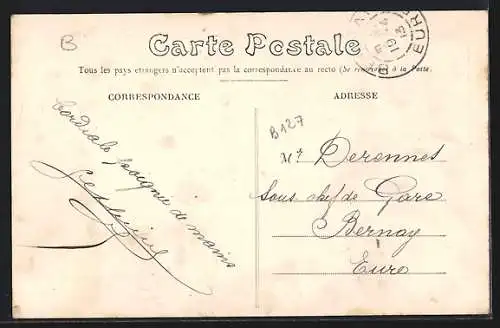 B
Carte Postale
Tous les pays etrangers n'acceptent pas la correspondance au recto (Se renseigner à la Poste.
CORRESPONDANCE
ADRESSE
B127
Cordiale poignée de mains
Mr Derennes
Sous chef de Gare
Bernay
Eure
EURE